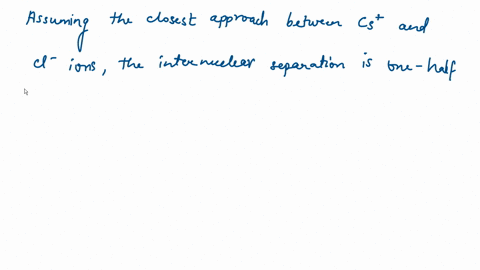 Assuming the closest approach between Cs⁺ and
Cl⁻ ions, the internuclear separation is one-half